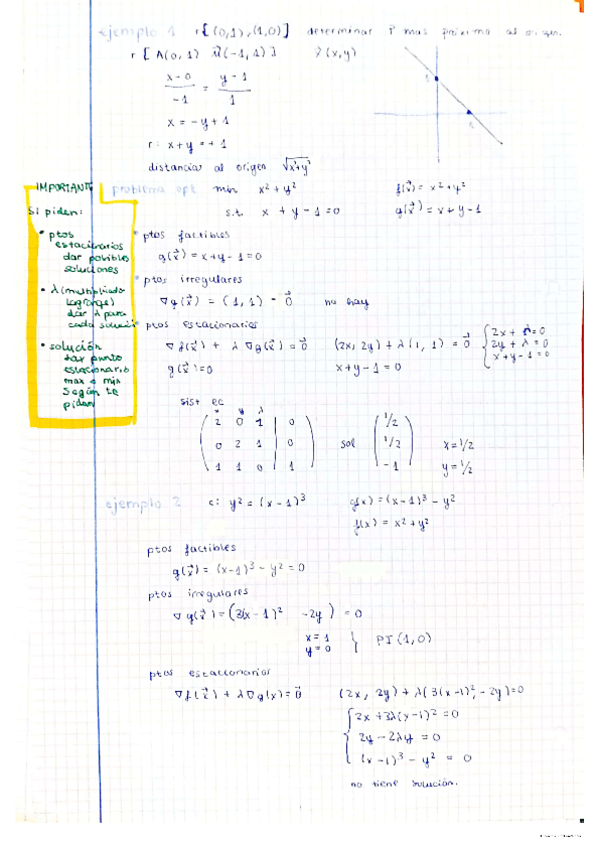 ejemplo 1 r[(0,1),(1,0)] determinar P mas próximo al origen.
r [ A(0,1) u⃗(-1,1)] P(x,y)
x-0 / -1 = y-1 / 1
x = -y+1
r: x+y=+1
1
1
distancias al origen √x²+y²
problema opt min x²+y² f(x⃗) = x²+y²
s.t. x + y - 1 = 0 g(x⃗) = x+y-1
IMPORTANTE
Si piden:
• ptos estacionarios dar posibles soluciones
• λ (multiplicador lagrange) dar λ para cada solución
• solución dar punto estacionario max o min según te pidan
• ptos factibles
g(x⃗) = x+y-1=0
• ptos irregulares
∇g(x⃗) = (1,1) = 0⃗ no hay
• ptos estacionarios
∇f(x⃗) + λ∇g(x⃗) = 0⃗ (2x, 2y) + λ(1,1) = 0⃗ { 2x + λ = 0
2y + λ = 0
g(x⃗)=0 x+y-1=0 x+y-1=0
sist ec
x y λ
2 0 1 | 0
0 2 1 | 0
1 1 0 | 1
sol
1/2
1/2
-1
x=1/2
y=1/2
ejemplo 2 c: y² = (x-1)³ g(x) = (x-1)³ - y²
f(x) = x²+y²
ptos factibles
g(x⃗) = (x-1)³ - y² = 0
ptos irregulares
∇g(x⃗) = (3(x-1)² -2y) = 0
x=1
y=0 } PI (1,0)
ptos estacionarios
∇f(x⃗) + λ∇g(x) = 0⃗ (2x, 2y) + λ(3(x-1)², -2y)=0
{ 2x + 3λ(x-1)² = 0
2y - 2λy = 0
(x-1)³ - y² = 0
no tiene solución.